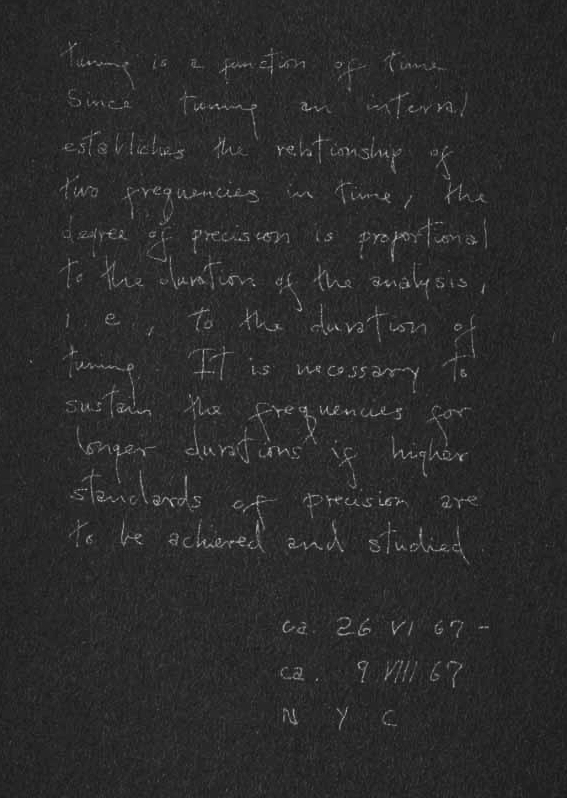 tuning is a function of time
Since tuning an interval
establiches the relationship of
two frequencies in time, the
degree of precision is proportional
to the duration of the analysis,
i. e., to the duration of
tuning. It is necessary to
sustain the frequencies for
longer durations if higher
standards of precision are
to be achieved and studied.
ca. 26 VI 67 -
ca. 9 VIII 67
N Y C